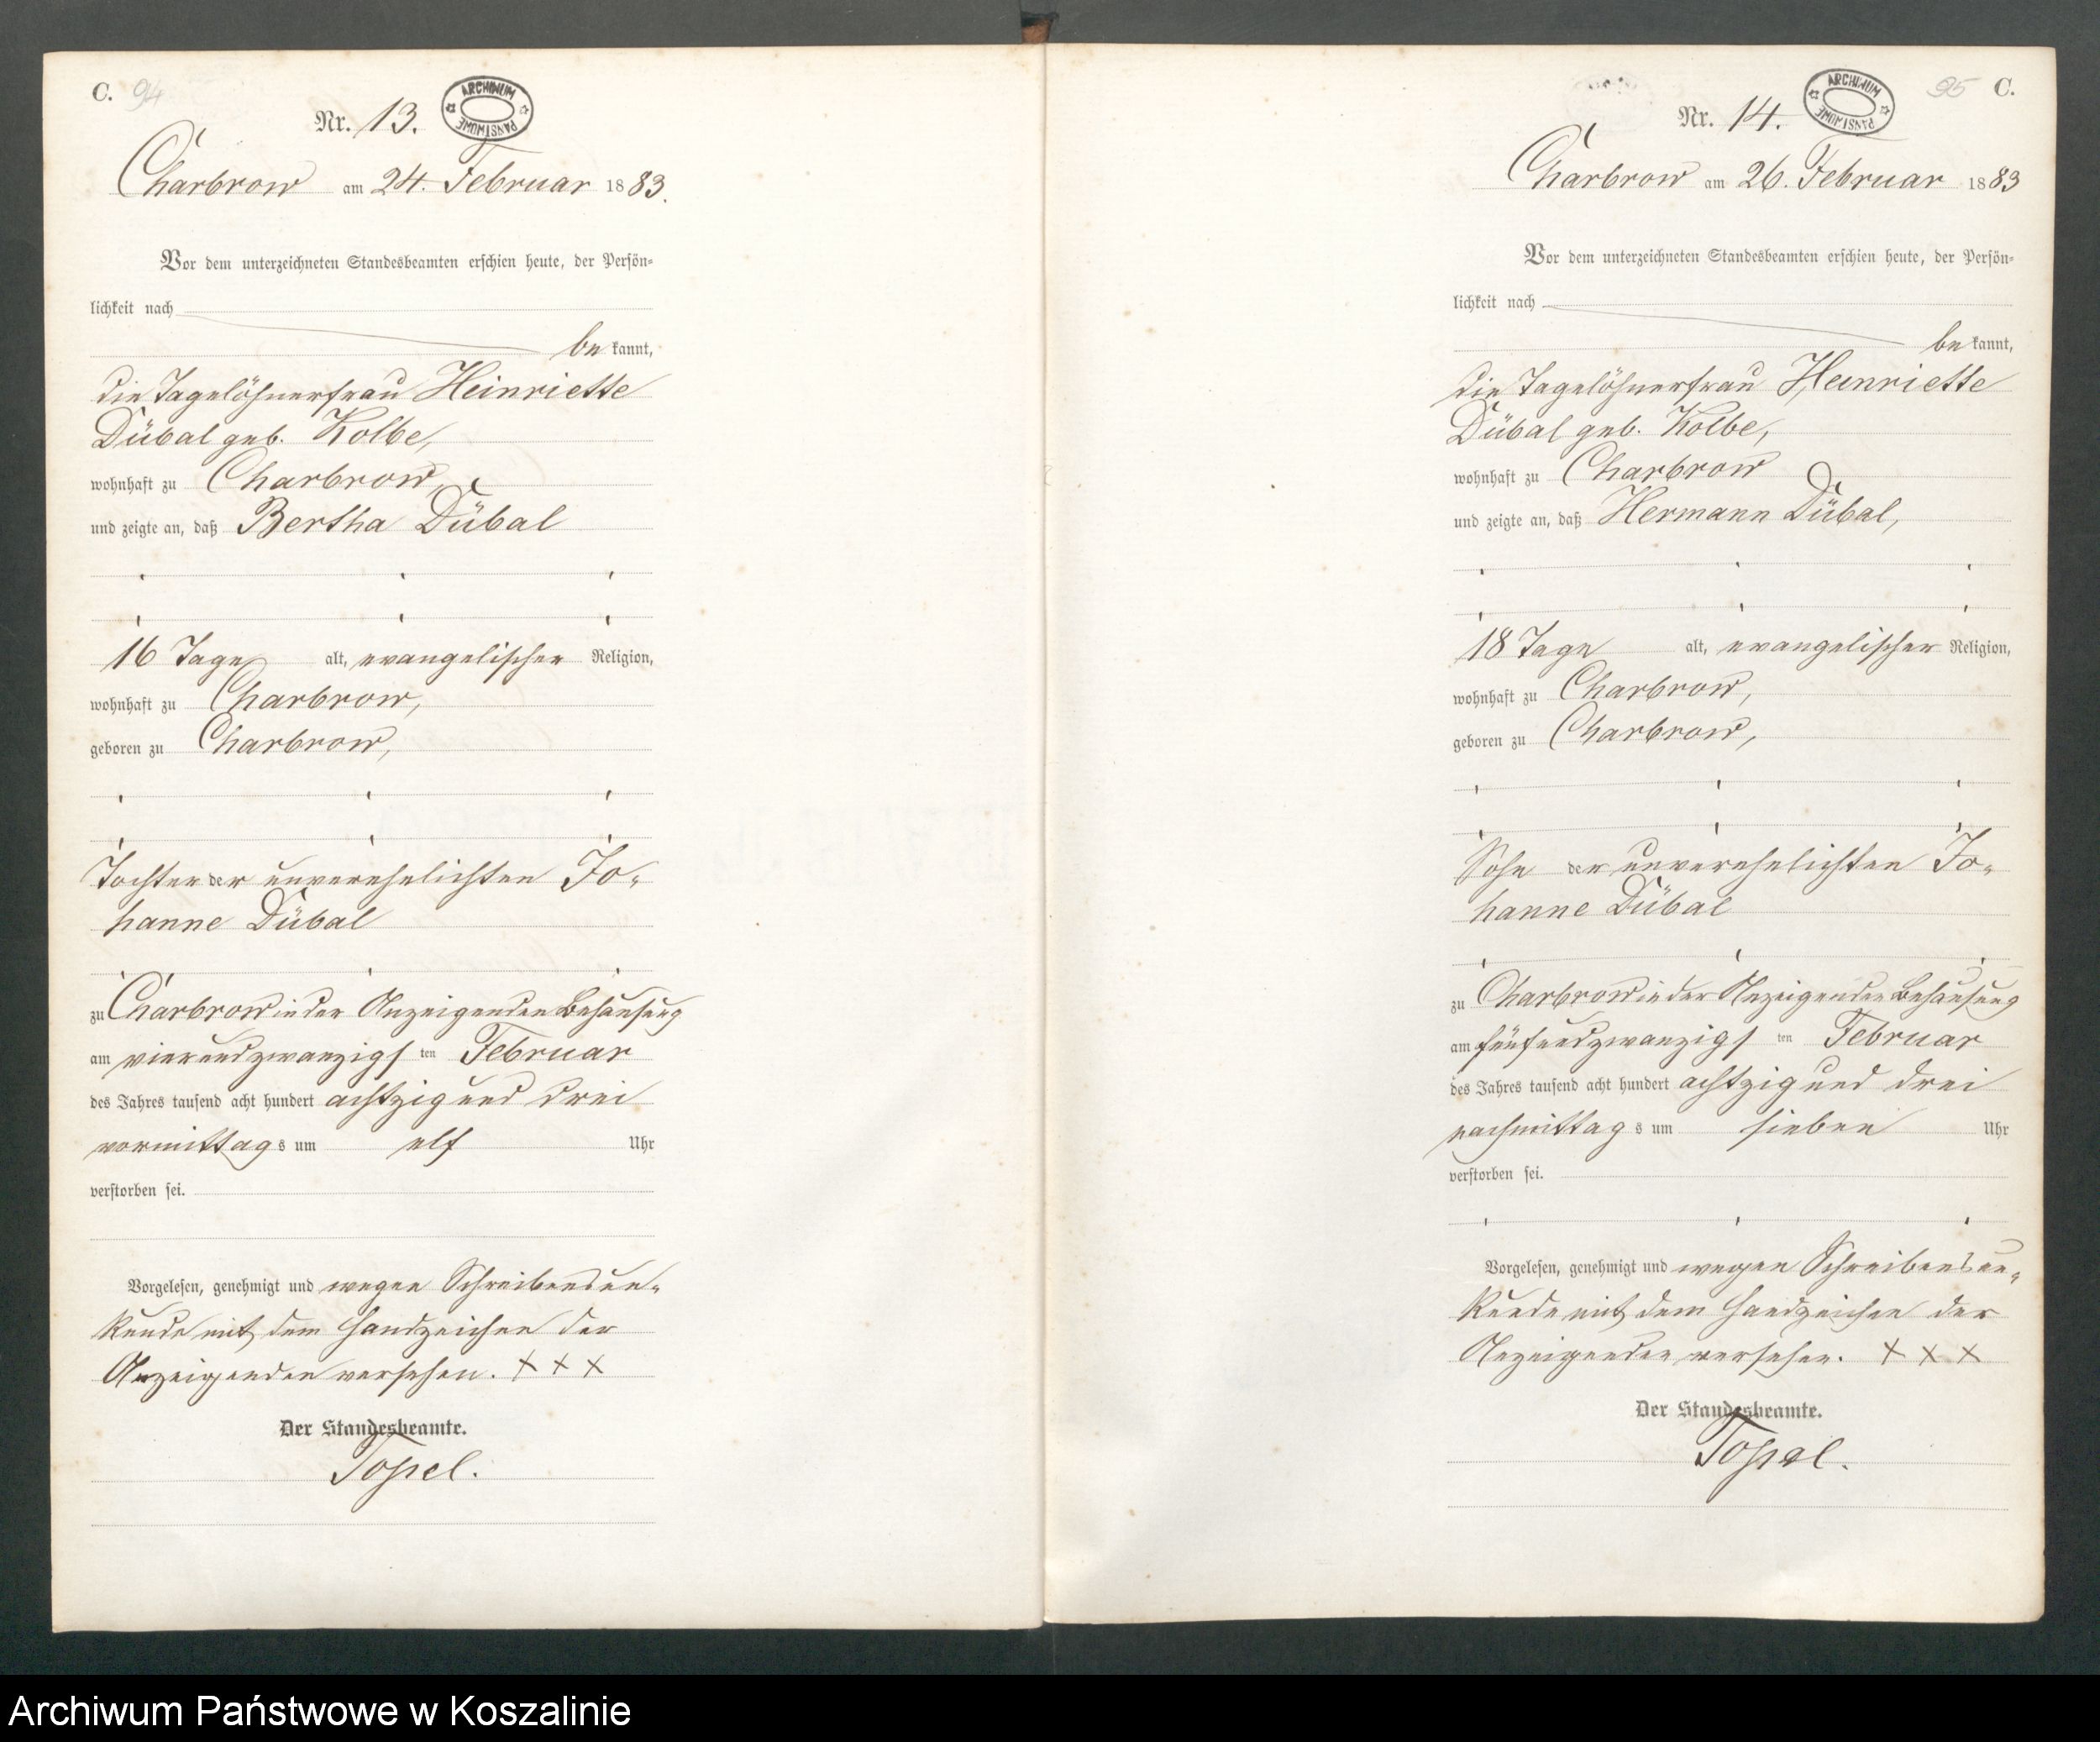 C. 94
Nr. 13.
ARCHIWUM PAŃSTWOWE
Charbrow am 24. Februar 1883.
Vor dem unterzeichneten Standesbeamten erschien heute, der Persön-
lichkeit nach
bekannt,
die Tagelöhnerfrau Heinriette
Dübal geb. Kolbe,
wohnhaft zu Charbrow,
und zeigte an, daß Bertha Dübal
16 Tage alt, evangelischer Religion,
wohnhaft zu Charbrow,
geboren zu Charbrow,
Tochter der unverehelichten Jo-
hanne Dübal
zu Charbrow in der Anzeigenden Behausung
am vierundzwanzigsten Februar
des Jahres tausend acht hundert achtzig und drei
vormittags um elf Uhr
verstorben sei.
Vorgelesen, genehmigt und wegen Schreibensun-
kunde mit dem Handzeichen der
Anzeigenden versehen. + + +
Der Standesbeamte.
Topel.
95 C.
Nr. 14.
ARCHIWUM PAŃSTWOWE
Charbrow am 26. Februar 1883
Vor dem unterzeichneten Standesbeamten erschien heute, der Persön-
lichkeit nach
bekannt,
die Tagelöhnerfrau Heinriette
Dübal geb. Kolbe,
wohnhaft zu Charbrow
und zeigte an, daß Hermann Dübal,
18 Tage alt, evangelischer Religion,
wohnhaft zu Charbrow,
geboren zu Charbrow,
Sohn der unverehelichten Jo-
hanne Dübal
zu Charbrow in der Anzeigenden Behausung
am fünfundzwanzigsten Februar
des Jahres tausend acht hundert achtzig und drei
nachmittags um sieben Uhr
verstorben sei.
Vorgelesen, genehmigt und wegen Schreibensun-
kunde mit dem Handzeichen der
Anzeigenden versehen. + + +
Der Standesbeamte.
Topel.
Archiwum Państwowe w Koszalinie